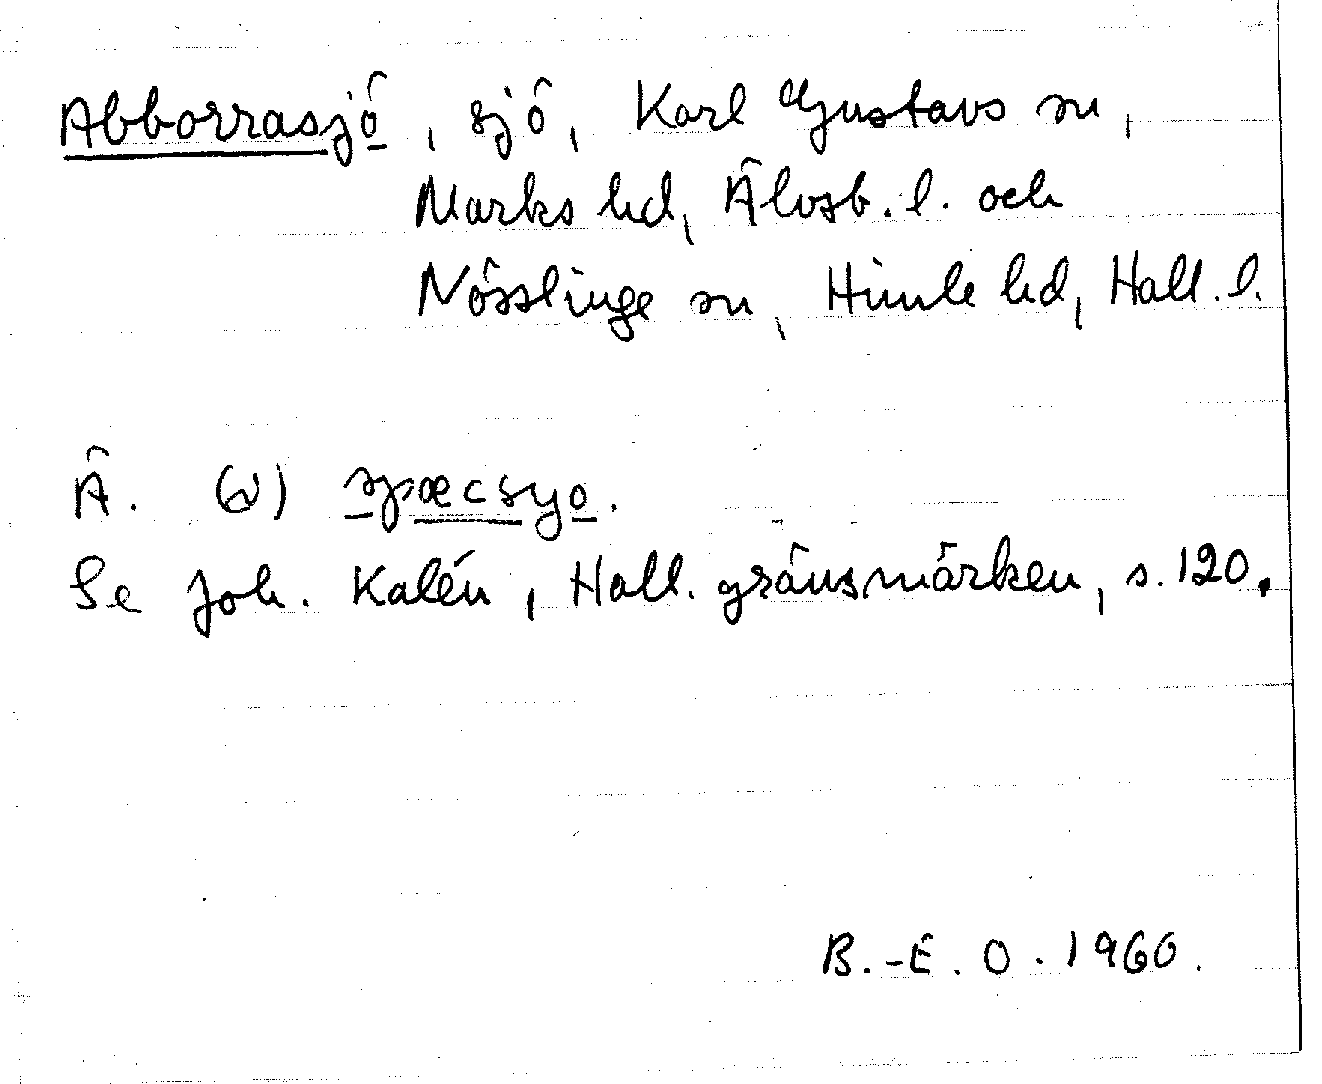 Abborrasjö, sjö, Karl Gustavs sn,
Marks hd, Älvsb. l. och
Nösslinge sn, Himle hd, Hall. l.
Ä.
Se Joh. Kalén, Hall. gränsmärken, s. 120.
B.-E. O. 1960.